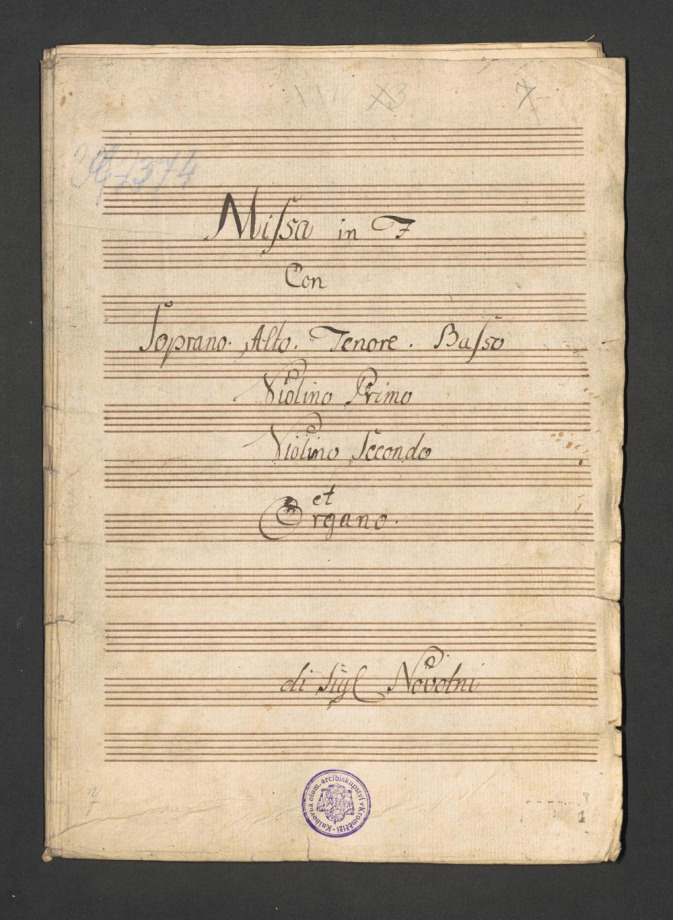 73 7
1374
Miſsa in F
Con
Soprano. Alto. Tenore. Baſso
Violino Primo
Violino Secondo
et
Organo.
di Sigl Novotni
Knihovna olom. arcibiskupství v Kroměříži
1